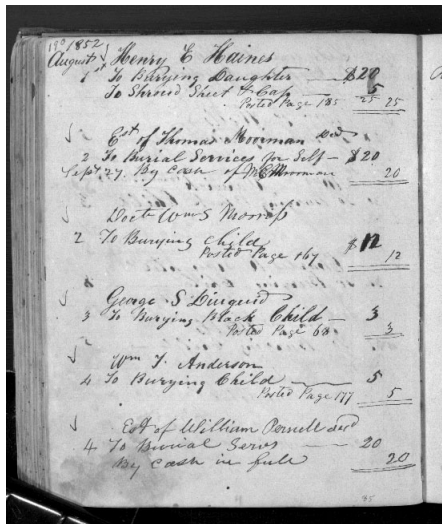 190 1852
August Henry E Haines
1st To Burying Daughter — $20
To Shroud Sheet & Cap 5
Posted Page 185 25 25
Est of Thomas Moorman Decd
2 To Burial Services for Self — $20
Sept 27. By Cash of Moorman 20
Doctr Wm S Morriss
2 To Burying Child $12
Posted Page 167 12
George S
3 To Burying Black Child — 3
Posted Page 68 3
Wm T. Anderson
4 To Burying Child — 5
Posted Page 177 5
Est of William decd
4 To Burial Servs — 20
By Cash in full 20